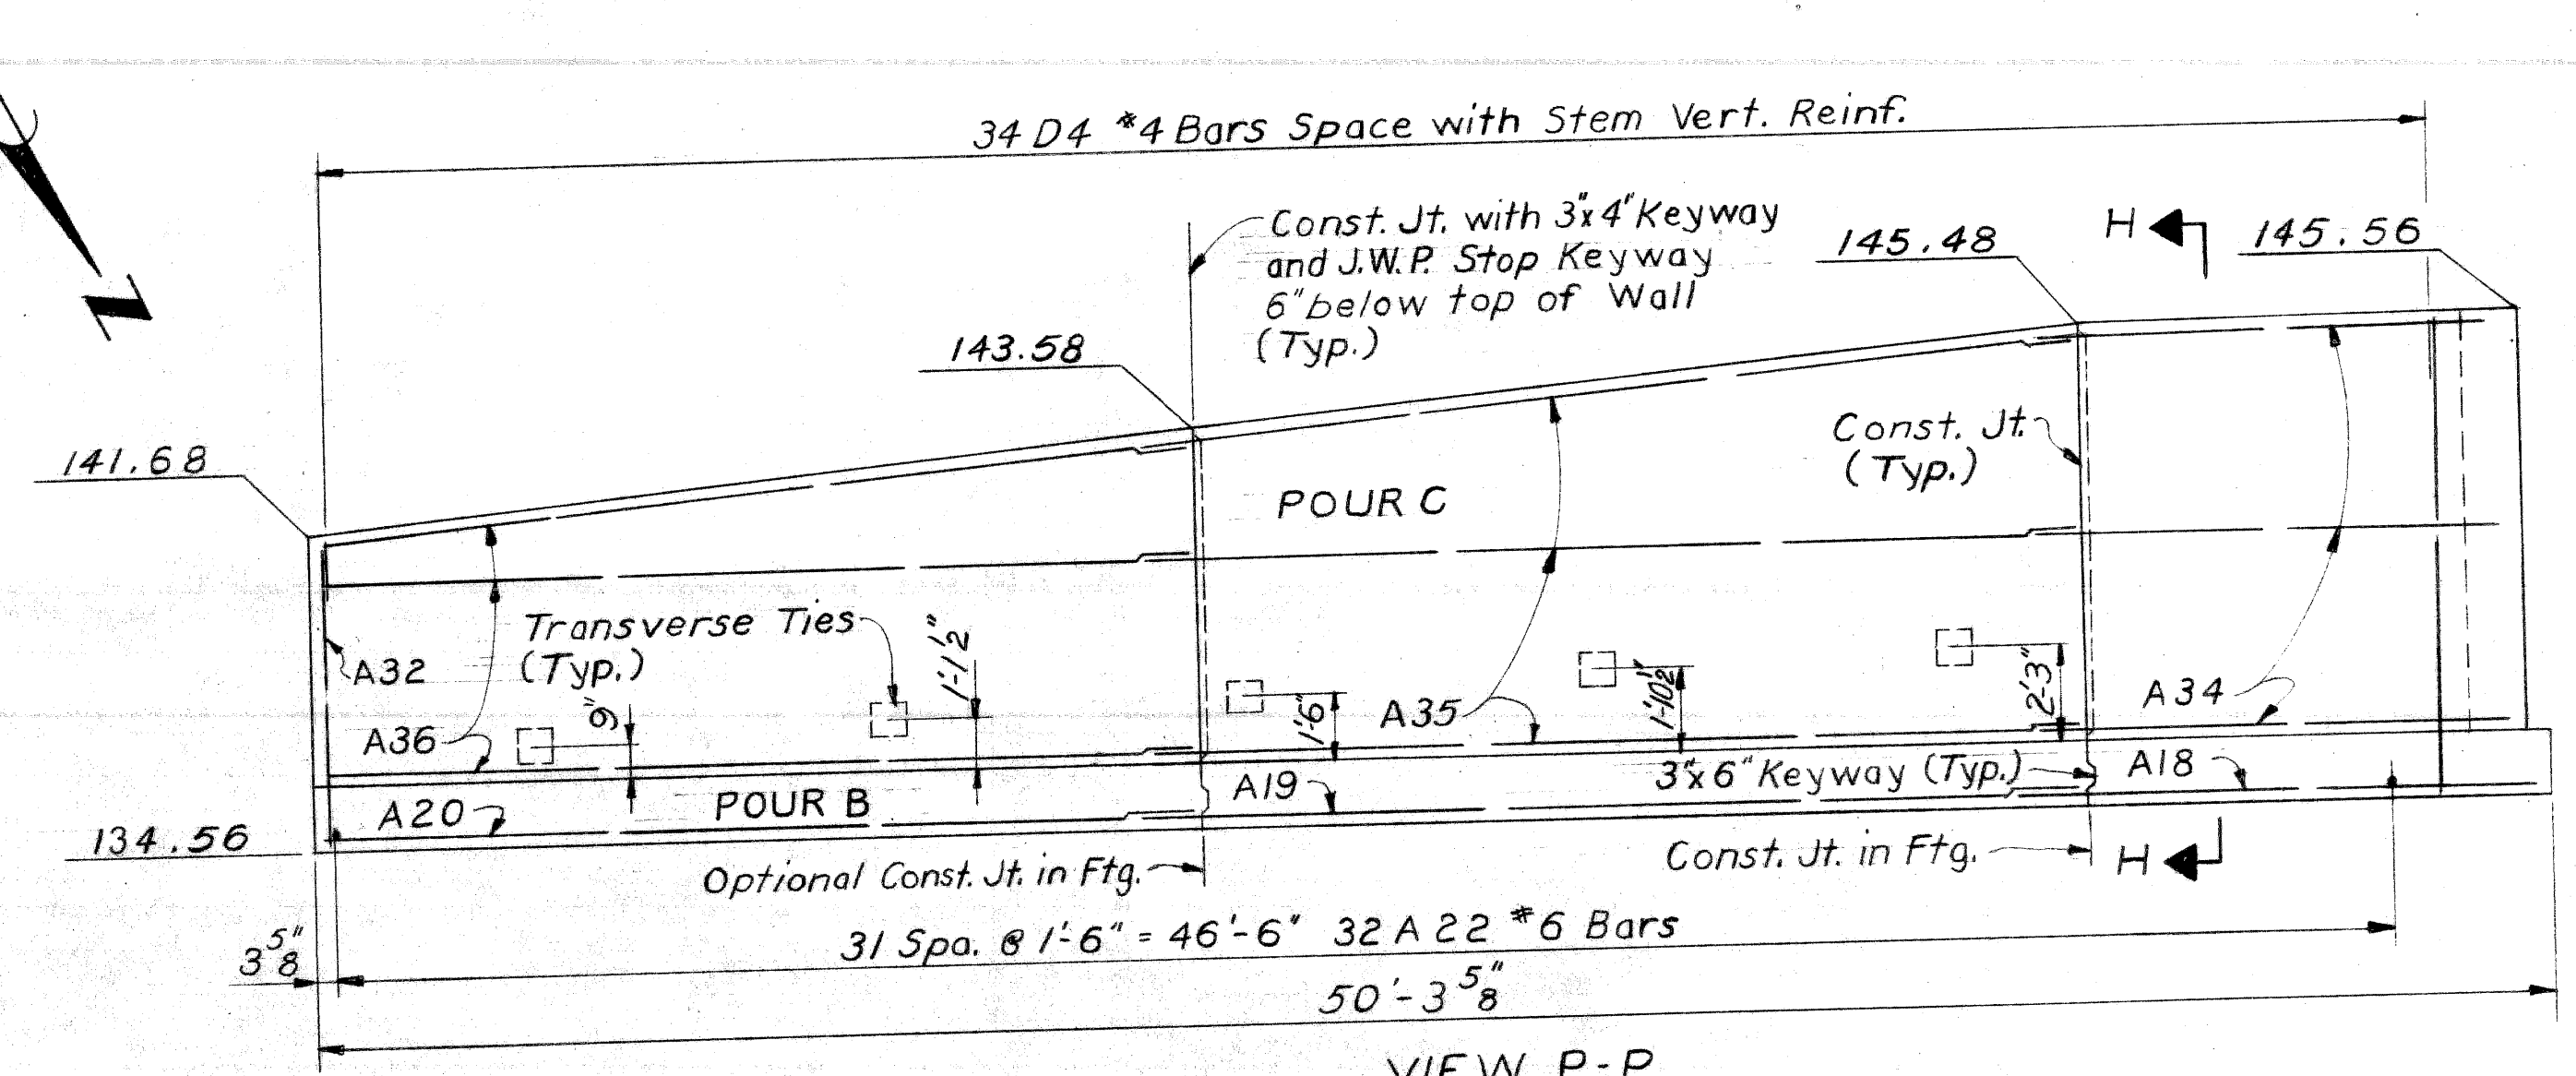 34 D4 #4 Bars Space with Stem Vert. Reinf.
Const. Jt. with 3"x4" Keyway
and J.W.P. Stop Keyway
6" below top of Wall
(Typ.)
H
145.56
145.48
143.58
141.68
N
Const. Jt.
(Typ.)
POUR C
Transverse Ties
(Typ.)
A32
9"
1'-1 1/2"
1'-6"
1'-10 1/2"
2'-3"
A36
A35
A34
A20
POUR B
A19
3"x6" Keyway (Typ.)
A18
134.56
Optional Const. Jt. in Ftg.
Const. Jt. in Ftg.
H
31 Spa. @ 1'-6" = 46'-6" 32 A22 #6 Bars
3 5/8"
50'-3 5/8"
VIEW P-P